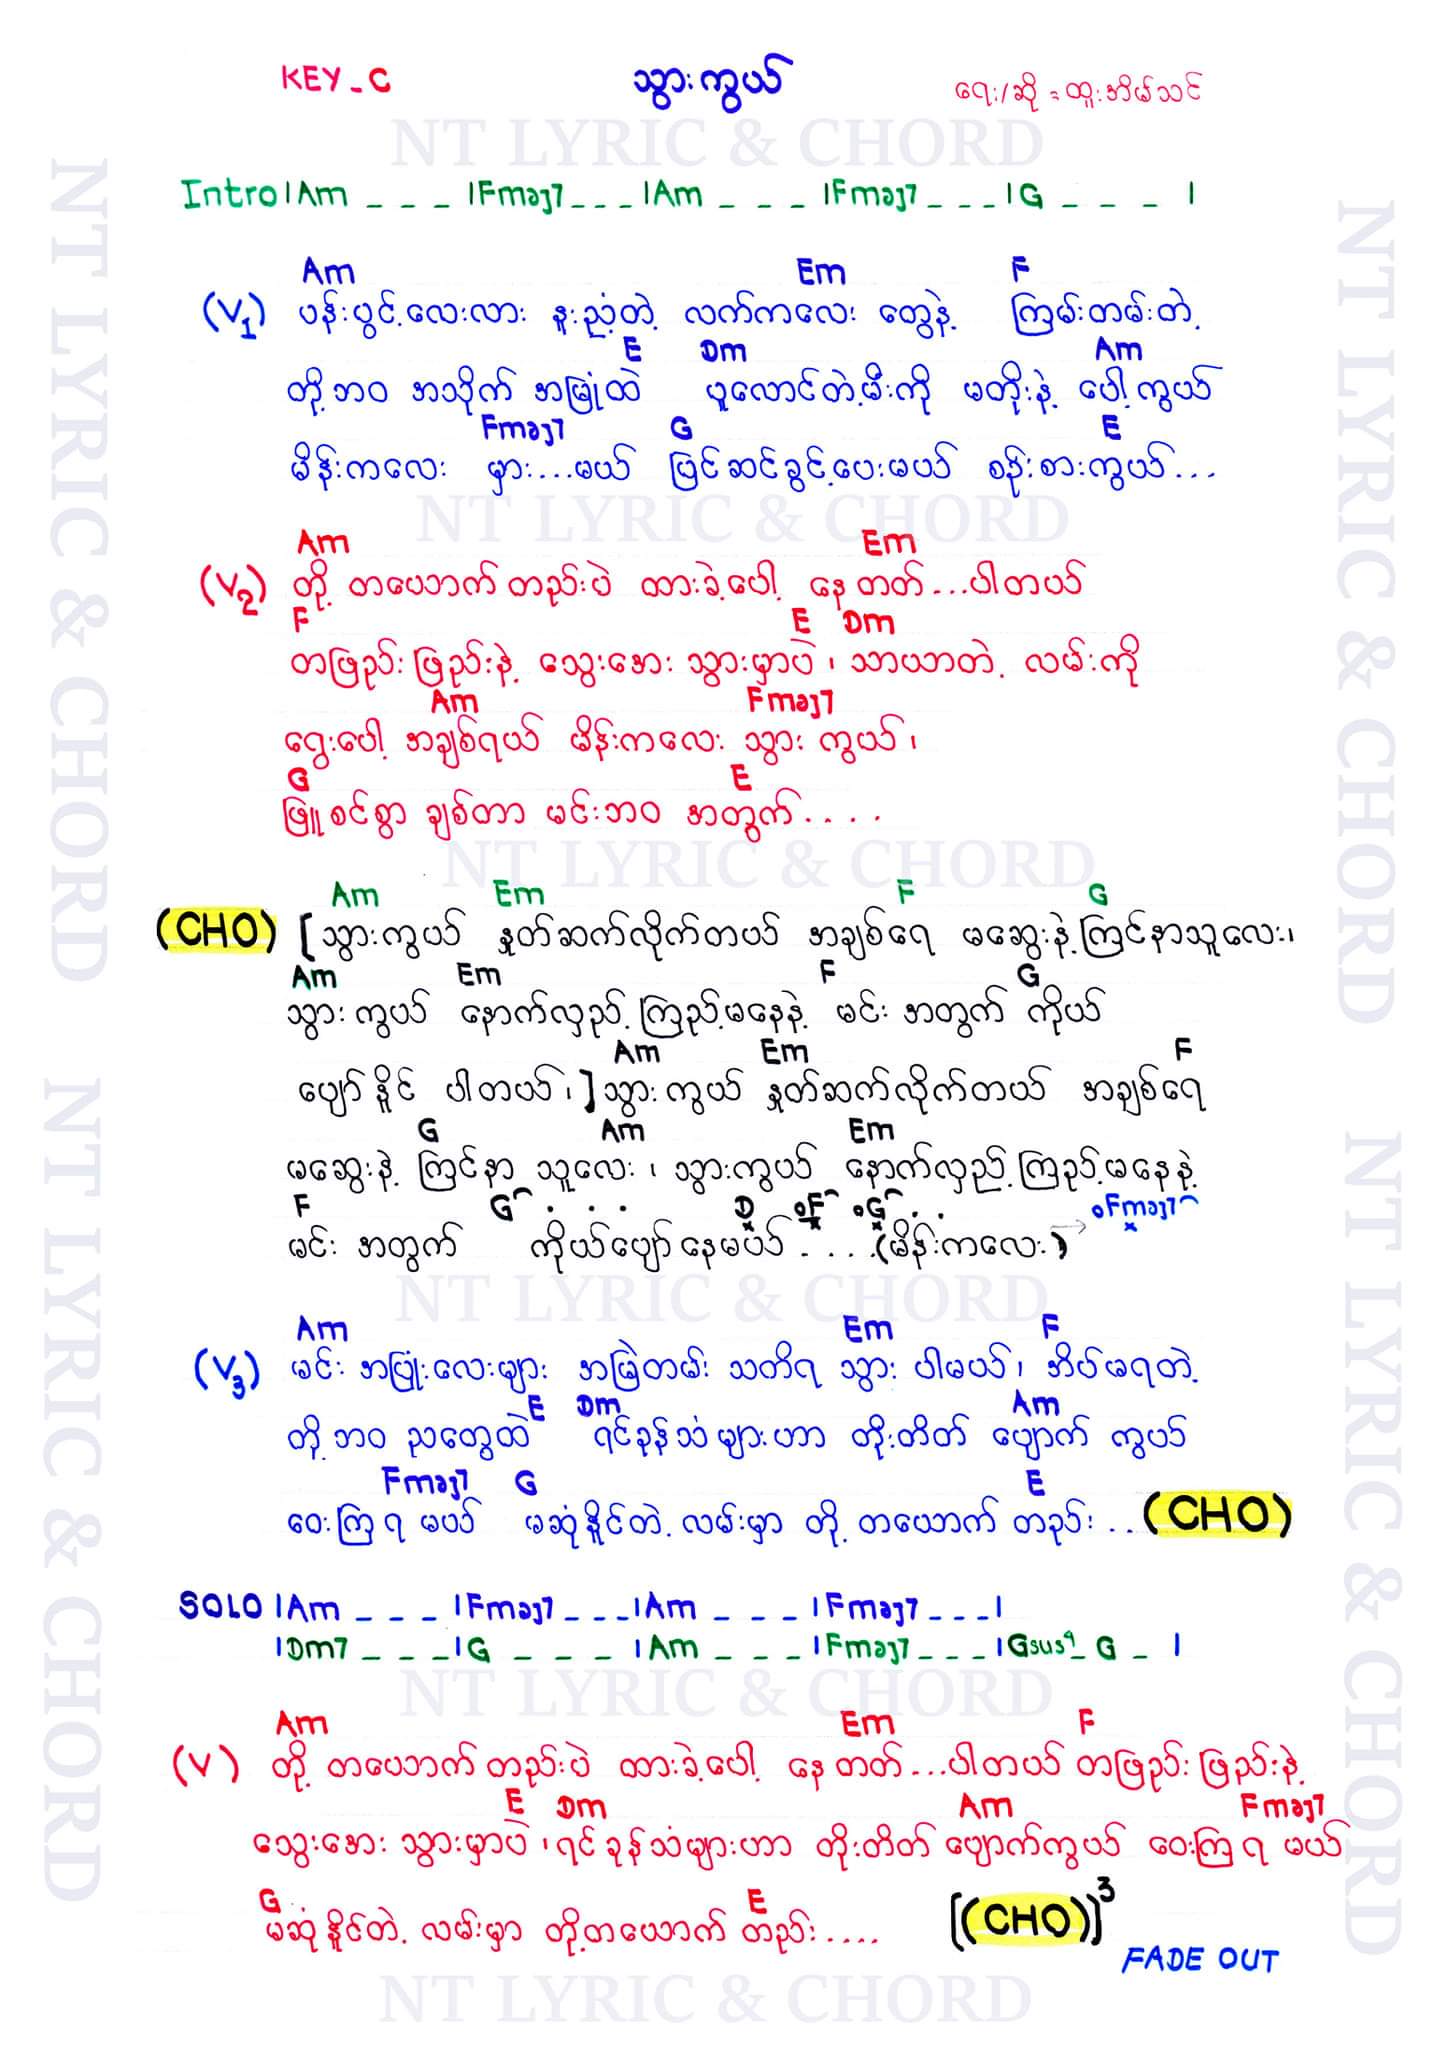 KEY - C
သွားကွယ်
ရေး/ဆို = ထူးအိမ်သင်
NT LYRIC & CHORD
Intro |Am _ _ _ |Fmaj7 _ _ _ |Am _ _ _ |Fmaj7 _ _ _ |G _ _ _ |
Am Em F
(V1) ပန်းပွင့်လေးလား နူးညံ့တဲ့ လက်ကလေး တွေနဲ့ ကြမ်းတမ်းတဲ့
E Dm Am
တို့ဘဝ အသိုက် အမြုံထဲ ပူလောင်တဲ့မီးကို မတိုးနဲ့ ပေါ့ကွယ်
Fmaj7 G E
မိန်းကလေး မှား...မယ် ပြင်ဆင်ခွင့်ပေးမယ် စဉ်းစားကွယ်...
NT LYRIC & CHORD
Am Em
(V2) တို့ တယောက်တည်းပဲ ထားခဲ့ပေါ့ နေတတ်...ပါတယ်
F E Dm
တဖြည်းဖြည်းနဲ့ သွေးအေး သွားမှာပဲ ၊ သာယာတဲ့ လမ်းကို
Am Fmaj7
ရွေးပေါ့ အချစ်ရယ် မိန်းကလေး သွား ကွယ် ၊
G E
ဖြူစင်စွာ ချစ်တာ မင်းဘဝ အတွက်....
NT LYRIC & CHORD
Am Em F G
(CHO) [သွားကွယ် နှုတ်ဆက်လိုက်တယ် အချစ်ရေ မဆွေးနဲ့ ကြင်နာသူလေး၊
Am Em F G
သွားကွယ် နောက်လှည့်ကြည့်မနေနဲ့ မင်း အတွက် ကိုယ်
Am Em F
ပျော်နိုင် ပါတယ်၊] သွားကွယ် နှုတ်ဆက်လိုက်တယ် အချစ်ရေ
G Am Em
မဆွေးနဲ့ ကြင်နာ သူလေး ၊ သွားကွယ် နောက်လှည့်ကြည့်မနေနဲ့
F G . . . D F G . . Fmaj7
မင်း အတွက် ကိုယ်ပျော်နေမယ် .... (မိန်းကလေး) →
NT LYRIC & CHORD
Am Em F
(V3) မင်း အပြုံးလေးများ အမြဲတမ်း သတိရ သွား ပါမယ်၊ အိပ်မရတဲ့
E Dm Am
တို့ဘဝ ညတွေထဲ ရင်ခုန်သံများဟာ တိုးတိတ် ပျောက် ကွယ်
Fmaj7 G E
ဝေးကြရမယ် မဆုံနိုင်တဲ့ လမ်းမှာ တို့ တယောက် တည်း .. (CHO)
SOLO |Am _ _ _ |Fmaj7 _ _ _ |Am _ _ _ |Fmaj7 _ _ _ |
|Dm7 _ _ _ |G _ _ _ |Am _ _ _ |Fmaj7 _ _ _ |Gsus4 _ G _ |
NT LYRIC & CHORD
Am Em F
(V) တို့ တယောက်တည်းပဲ ထားခဲ့ပေါ့ နေတတ်...ပါတယ် တဖြည်းဖြည်းနဲ့
E Dm Am Fmaj7
သွေးအေး သွားမှာပဲ ၊ ရင်ခုန်သံများဟာ တိုးတိတ် ပျောက်ကွယ် ဝေးကြရ မယ်
G E
မဆုံနိုင်တဲ့ လမ်းမှာ တို့တယောက် တည်း.... [(CHO)]3
FADE OUT
NT LYRIC & CHORD
NT LYRIC & CHORD
NT LYRIC & CHORD
NT LYRIC & CHORD
NT LYRIC & CHORD